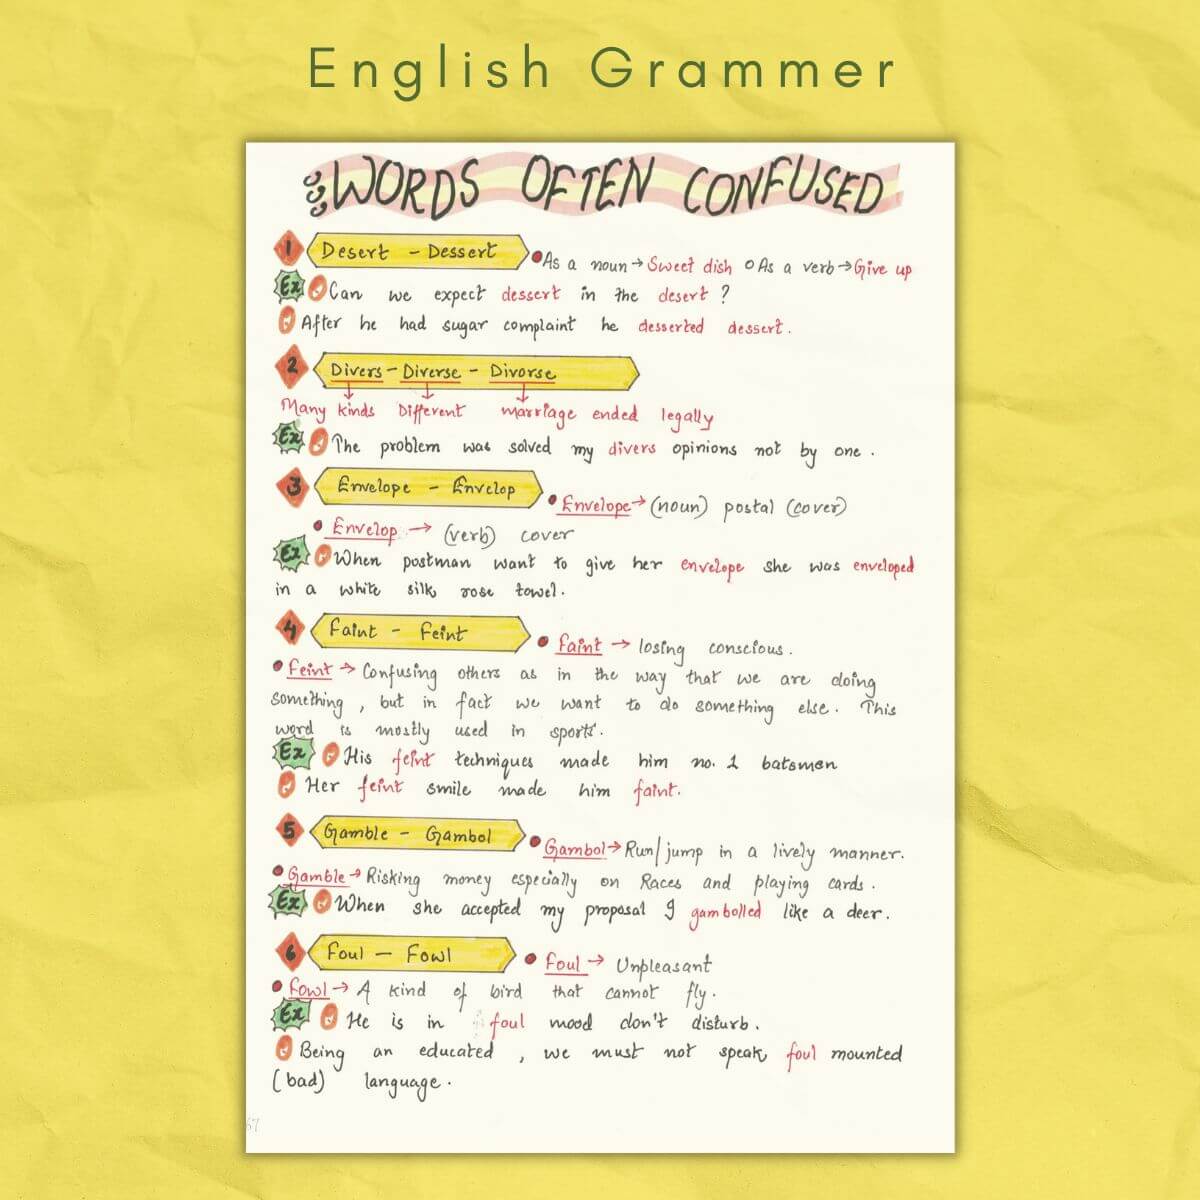 English Grammer
WORDS OFTEN CONFUSED
1 Desert - Dessert As a noun → Sweet dish As a verb → Give up
Ex Can we expect dessert in the desert ?
After he had sugar complaint he desserted dessert.
2 Divers - Diverse - Divorse
Many kinds Different marriage ended legally
Ex The problem was solved my divers opinions not by one .
3 Envelope - Envelop Envelope → (noun) postal (cover)
Envelop → (verb) cover
Ex When postman want to give her envelope she was enveloped
in a white silk rose towel.
4 Faint - Feint Faint → losing conscious .
Feint → Confusing others as in the way that we are doing
something , but in fact we want to do something else . This
word is mostly used in sports.
Ex His feint techniques made him no. 1 batsmen
Her feint smile made him faint.
5 Gamble - Gambol Gambol → Run/jump in a lively manner.
Gamble → Risking money especially on Races and playing cards .
Ex When she accepted my proposal I gambolled like a deer.
6 Foul - Fowl Foul → Unpleasant
Fowl → A kind of bird that cannot fly.
Ex He is in foul mood don't disturb .
Being an educated , we must not speak foul mounted
(bad) language .
67